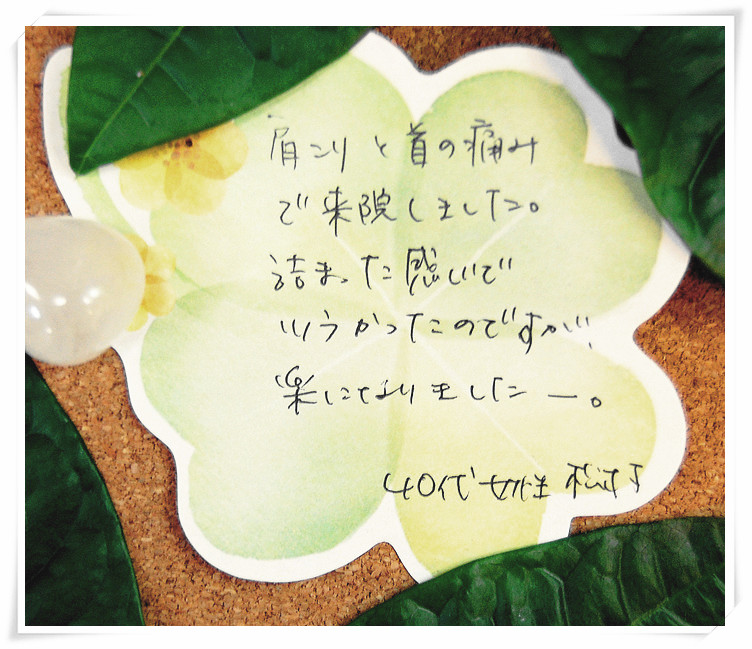 肩こりと首の痛み
で来院しました。
詰まった感じで
つらかったのですが、
楽になりましたー。
40代 女性